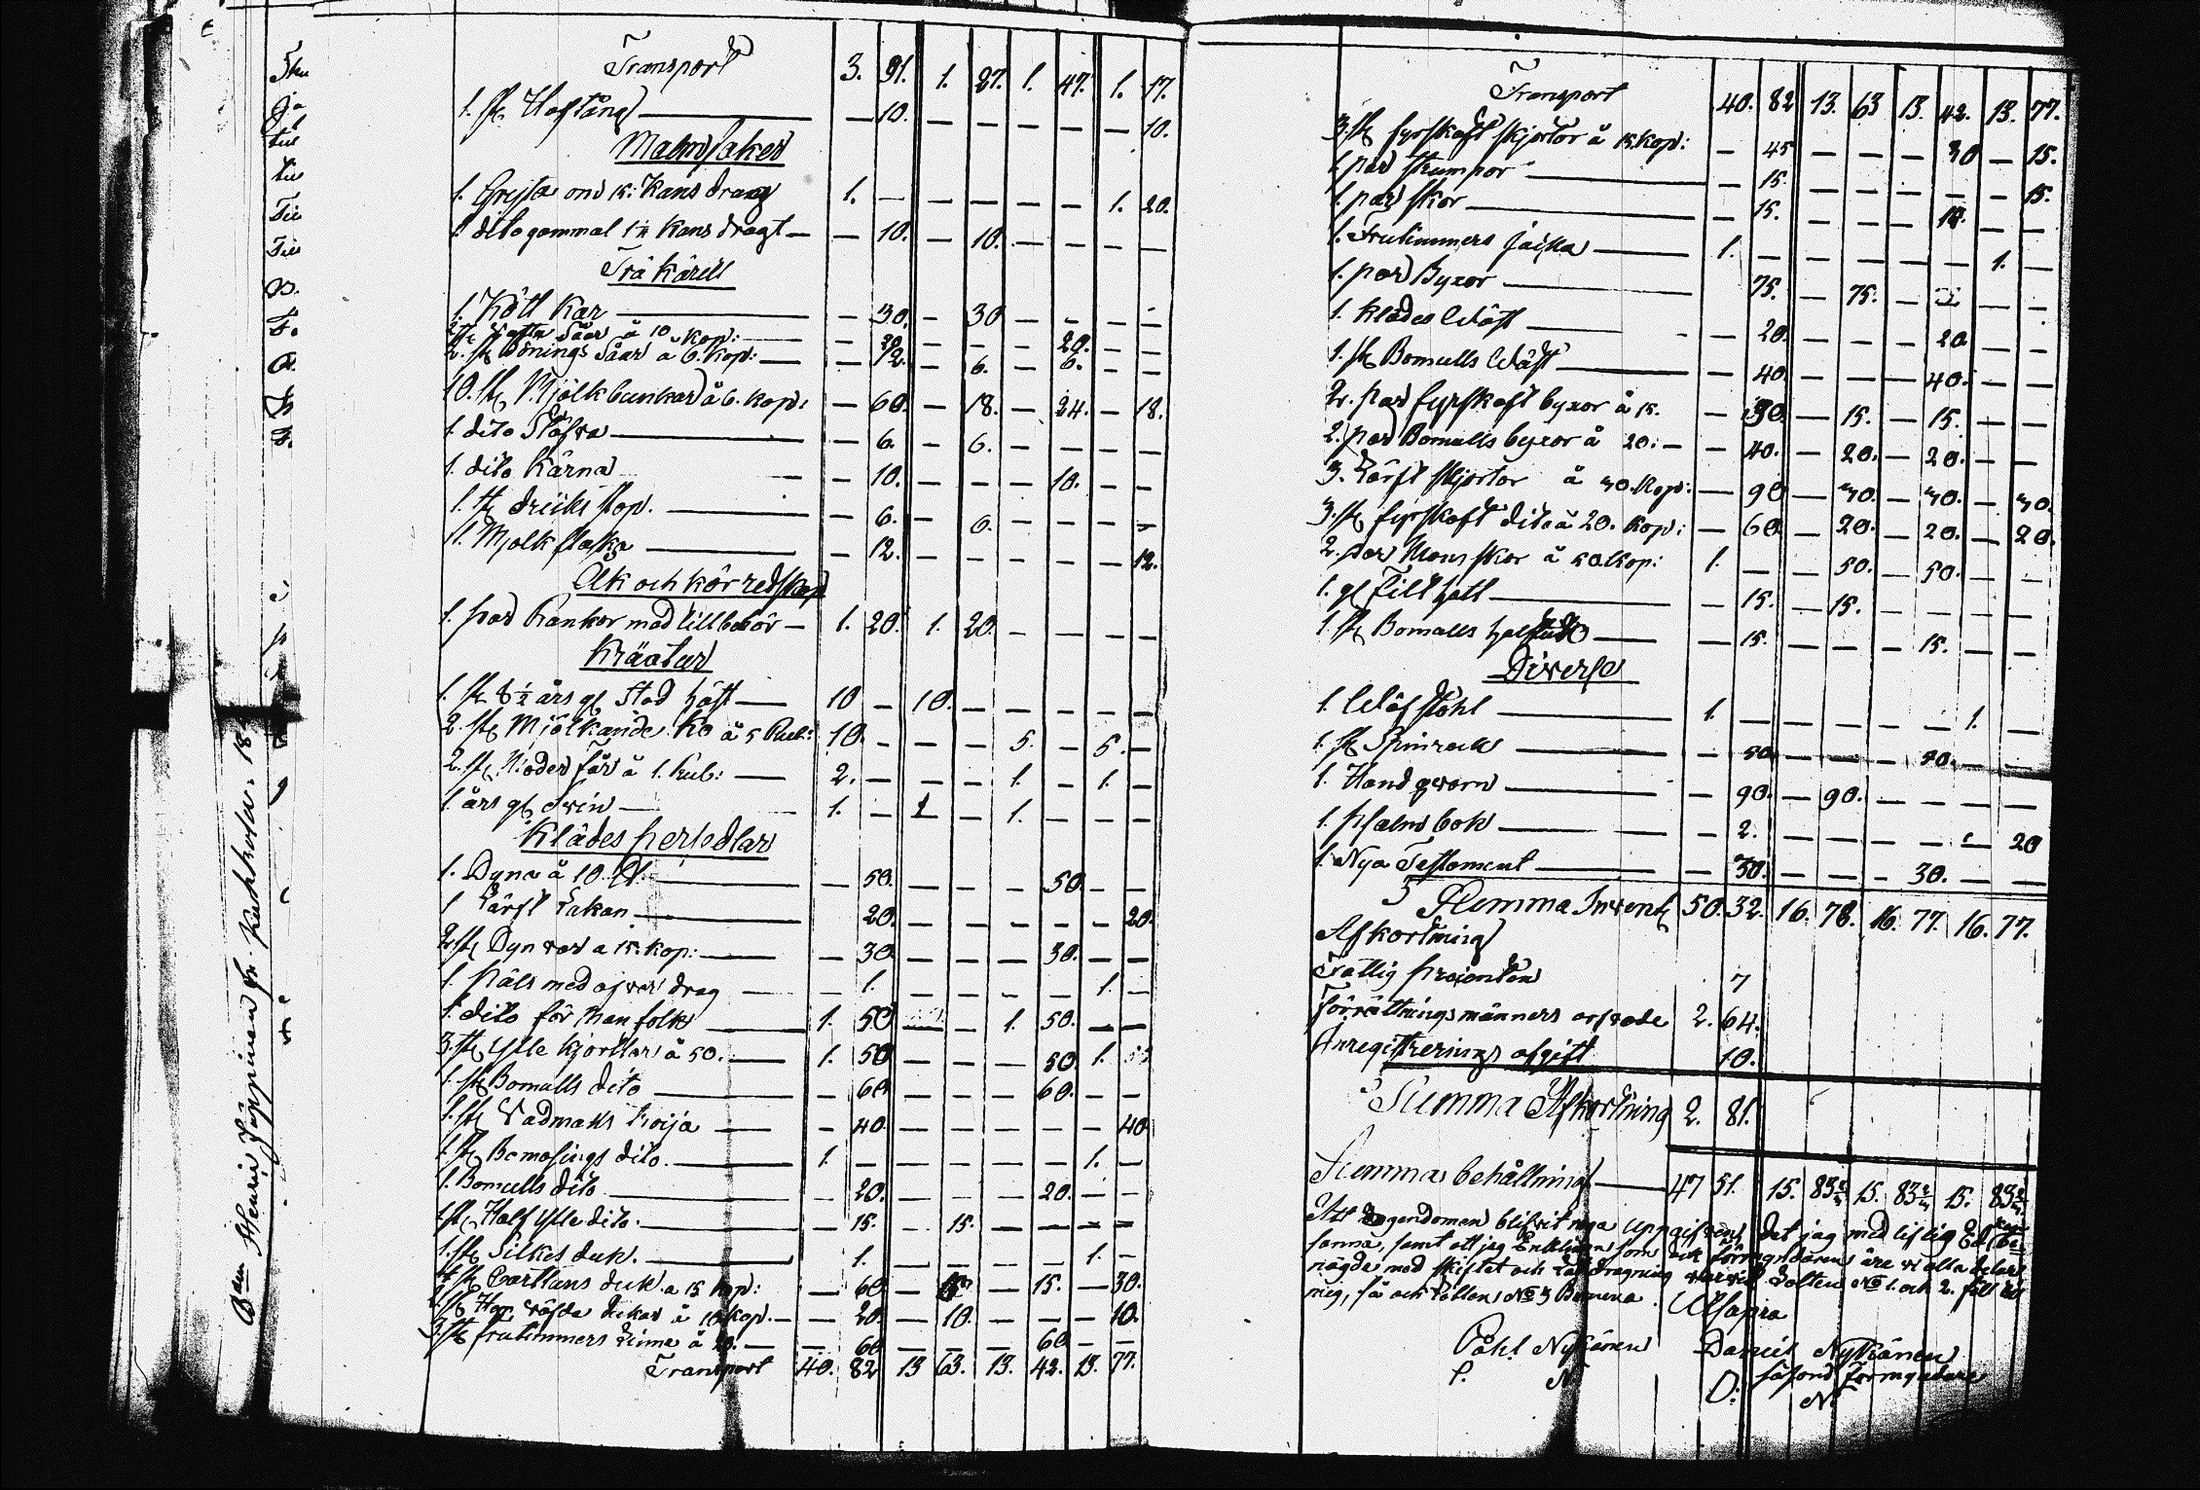 Transport 3. 91. 1. 27. 1. 47. 1. 17.
1. st Hoftång — 10. — — — — — 10.
Malmsaker
1. Gryta om 15: Kans drag 1. — — — — — 1. 20.
1 dito gammal 1 Kans dragt — — 10. — 10. — — — —
Trä Käril
1. Kött Kar — 30. — 30 — — — —
2. st Vatten Såar å 10 Kop: — 20. — — — 20. — —
2. st Bönings Såar å 6. Kop: — 12. — 6. — 6. — —
10. st Mjölk bunkar å 6. Kop: — 60. — 18. — 24. — 18.
1. dito Stäfva — 6. — 6. — — — —
1. dito Kärna — 10. — — — 10. — —
1. st dricks stop. — 6. — 6. — — — —
1. Mjölk flaska — 12. — — — — — 12.
Åk och kör redskap
1. par Kankor med tillbehör — 1. 20. 1. 20. — — — —
Kräatur
1. st 8½ års gl Stod häst — 10 — 10. — — — — —
2. st Mjölkande Ko å 5 Rub: 10. — — — 5. — 5. —
2. st Moder får å 1. Rub: — 2. — — — 1. — 1. —
1. års gl Svin — 1. — 1 — 1. — — —
Klädes persedlar
1. Dyna å 10 — 50. — — — 50. — —
1 Lärft Lakan — 20. — — — — — 20.
2. st Dyn var a 15. kop: — 30 — — — 30. — —
1. Päls med ajvar drag — 1. — — — — 1. —
1. dito för Man folk — 1. 50 — — 1. 50. — —
3. st Ylle Kjortlar å 50. — 1. 50 — — — 50. 1.
1. st Bomulls dito — 60 — — — 60. — —
1. st Vadmals troija — 40 — — — — — 40
1. st Bomasings dito. — 1. — — — — — 1. —
1. Bomulls dito — 20. — — — 20. — —
1 st Half Ylle dito. — 15. — 15. — — — —
1. st Silkes duk. — 1. — — — — 1. —
4 st Cvarttans duk a 15 Kop: — 60 — — 15. — 30.
2. st dukar å 10 Kop. — 20. — 10. — — — 10.
3. st frutimmers Lima å 20. — 60 — — — 60. — —
Transport 40. 82 13 63. 13. 42. 13. 77.
Transport 40. 82 13. 63 13. 42. 13. 77.
3. st fyrskaft skjortor å 15 Kop: — 45 — — — 30 — 15.
1. par strumpor — 15. — — — — — 15.
1. par skor — 15. — — — 15. — —
1. Frutimmers Jacka — 1. — — — — — 1. —
1. par Byxor — 75. — 75. — — — —
1. klädes Wäst — 20. — — — 20 — —
1. st Bomulls Wäst — 40. — — — 40. — —
2. par fyrskaft byxor å 15. — 30. — 15. — 15. — —
2. par Bomulls byxor å 20: — — 40. — 20. — 20. — —
3. Lärft skjortor å 30. Kop: — 90 — 30. — 30. — 30.
3. st fyrskaft dito å 20. Kop: — 60. — 20. — 20. — 20.
2. par Mans skor å 50. Kop: 1. — — 50. — 50. — —
1. gl Filt hatt — 15. — 15. — — — —
1. st Bomulls halsduk — 15. — — — 15. — —
Diverse
1. Wäf stohl — 1. — — — — — 1. —
1. st Spinrock — 50 — — — 50. — —
1. Handqvarn — 90. — 90. — — — —
1. Psalm bok — 2. — — — — — 20
1. Nya Testament — 30. — — — 30. — —
Summa Invent 50. 32. 16. 78. 16. 77. 16. 77.
Afkortning
Fattig procenten 7
Förrättningsmänners arfvode 2. 64.
Inregistrerings afgift 10.
Summa Afkortning 2. 81.
Summa behållning — 47 51. 15. 83⅔ 15. 83⅔ 15. 83⅔
Att egendomen blifvit noga uppgifven, det jag med liflig Ed
sanna, samt att jag Enklingen som ock förmyndaren äre vi alla delar
nögde med skiftet och Lottdragning Lotten No 1. och 2. föll
mig, så och Lotten No 3 Ut supra
Påhl Nykänen Daniel Nykänen
P. N. såsom Förmyndare
D. N.
8 den Henric Jäppinen fr. Kukkola. 18